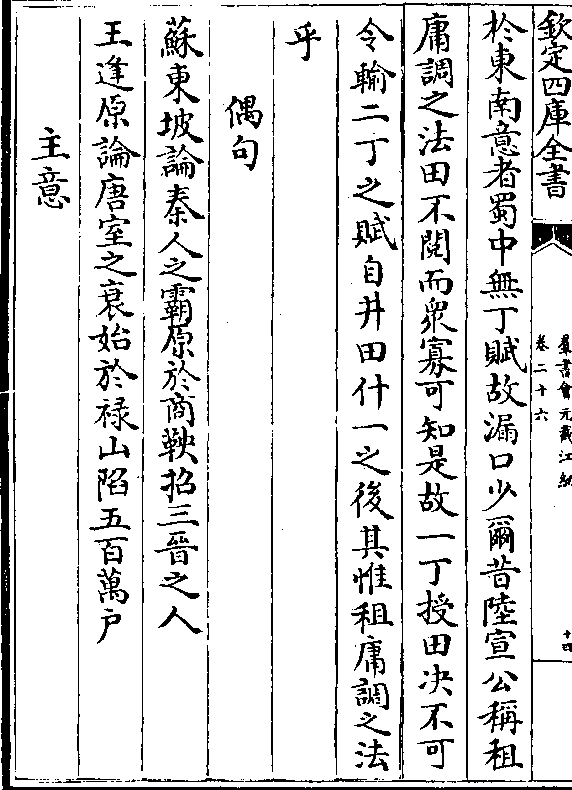 欽定四庫全書
羣書會元截江網
卷二十六
十四
於東南意者蜀中無丁賦故漏口少爾昔陸宣公稱租
庸調之法田不閱而衆寡可知是故一丁授田决不可
令輸二丁之賦自井田什一之後其惟租庸調之法
乎
偶句
蘇東坡論秦人之霸原於商鞅招三晉之人
王逢原論唐室之衰始於禄山陷五百萬户
主意